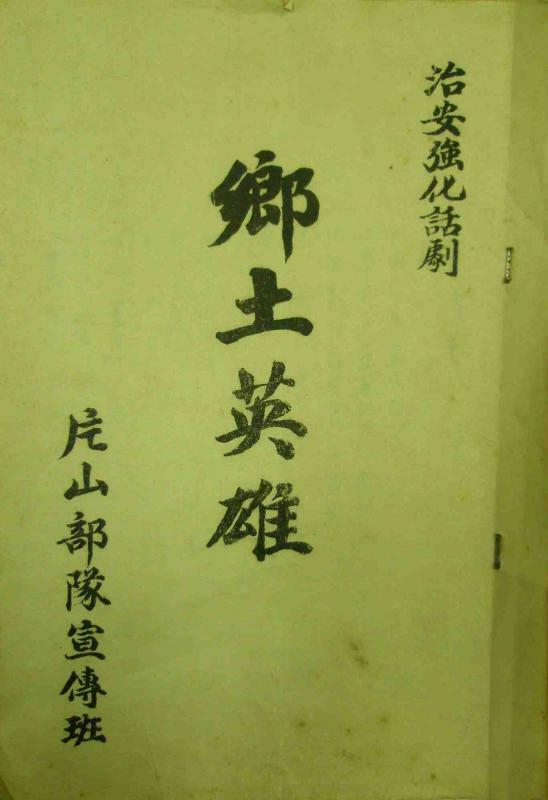 治安強化話劇
鄉土英雄
片山部隊宣傳班